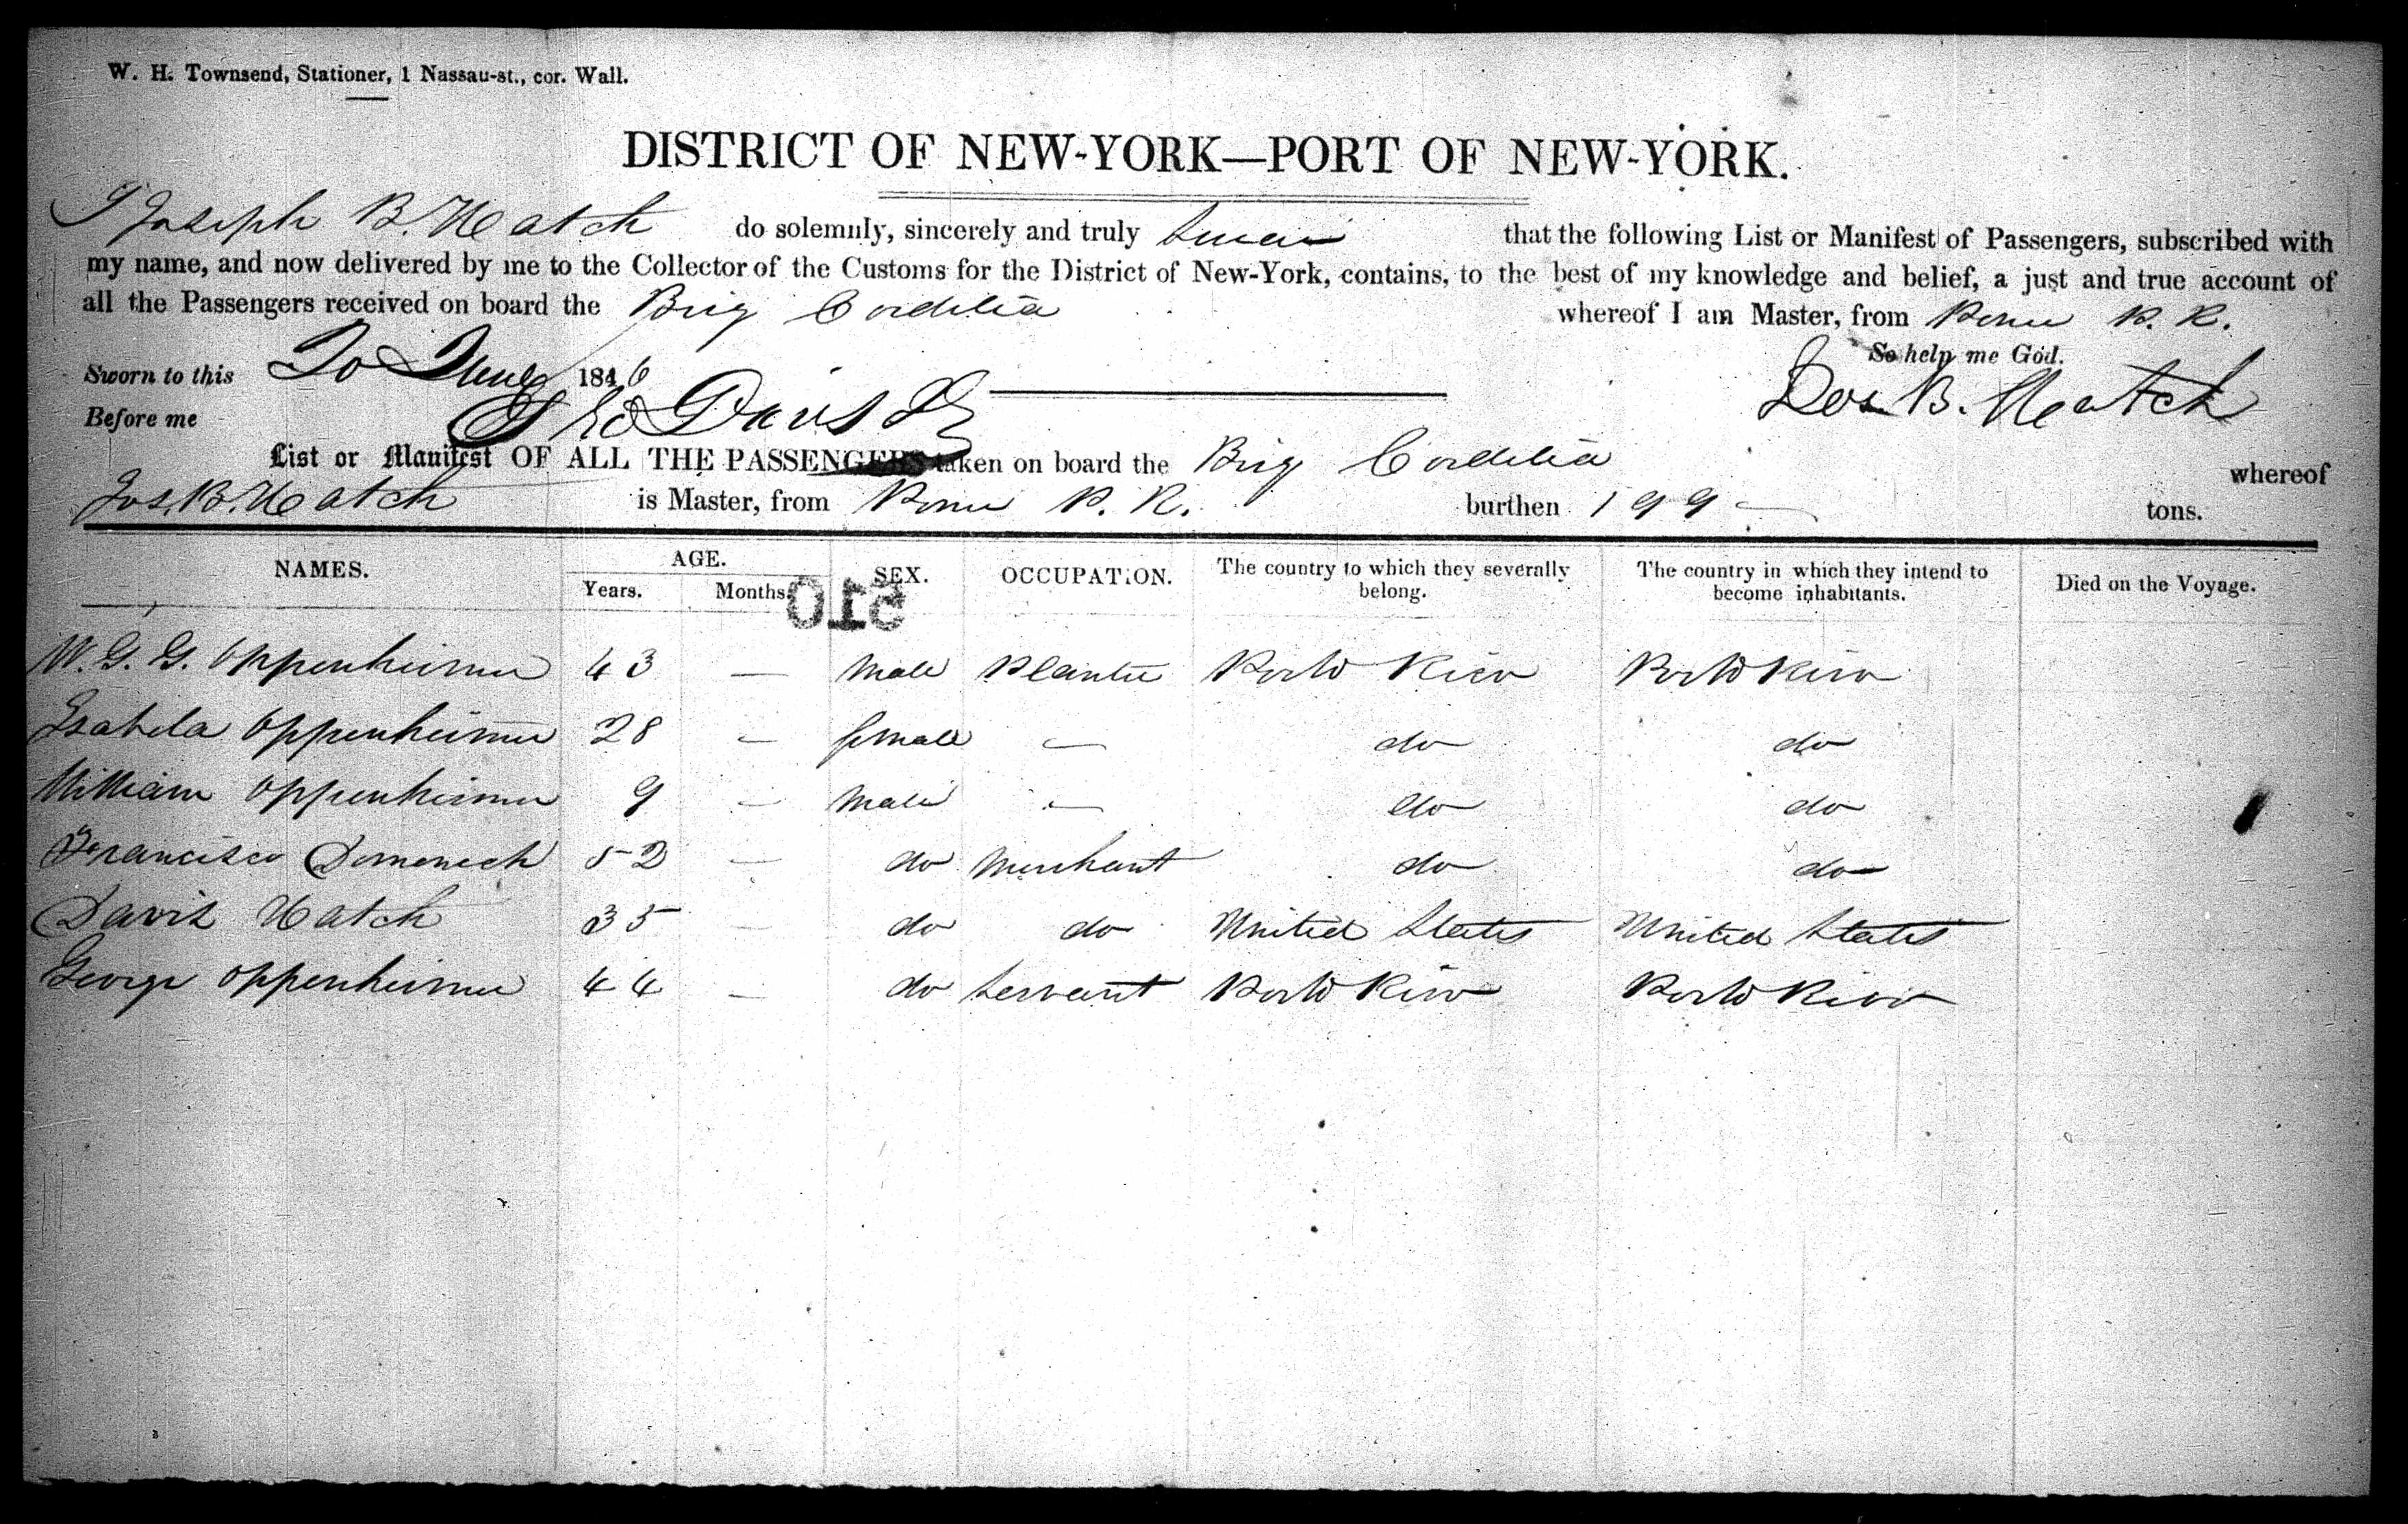 W. H. Townsend, Stationer, 1 Nassau-st., cor. Wall.
DISTRICT OF NEW-YORK—PORT OF NEW-YORK.
I Joseph B. Hatch do solemnly, sincerely and truly swear that the following List or Manifest of Passengers, subscribed with
my name, and now delivered by me to the Collector of the Customs for the District of New-York, contains, to the best of my knowledge and belief, a just and true account of
all the Passengers received on board the Brig Cordelia whereof I am Master, from Ponce P. R.
So help me God.
Sworn to this 20 June 1846
Jos. B. Hatch
Before me Davis
List or Manifest OF ALL THE PASSENGERS taken on board the Brig Cordelia whereof
Jos. B. Hatch is Master, from Ponce P. R. burthen 199 tons.
NAMES. AGE. SEX. OCCUPATION. The country to which they severally belong. The country in which they intend to become inhabitants. Died on the Voyage.
Years. Months
510
W. G. G. Oppenheimer 43 — Male Planter Porto Rico Porto Rico
Isabela Oppenheimer 28 — female — do do
William Oppenheimer 9 — Male — do do
Francisco Domenech 52 — do Merchant do do
Davis Hatch 35 — do do United States United States
George Oppenheimer 44 — do Servant Porto Rico Porto Rico